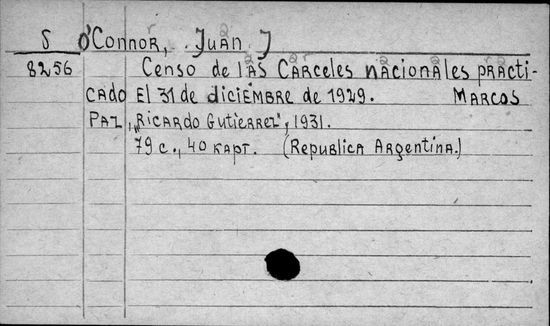 S O'Connor, Juan J
8256 Censo de las Carceles nacionales practi-
cado el 31 de diciembre de 1929. Marcos
Paz, „Ricardo Gutierrez", 1931.
79 c., 40 карт. (Republica Argentina.)